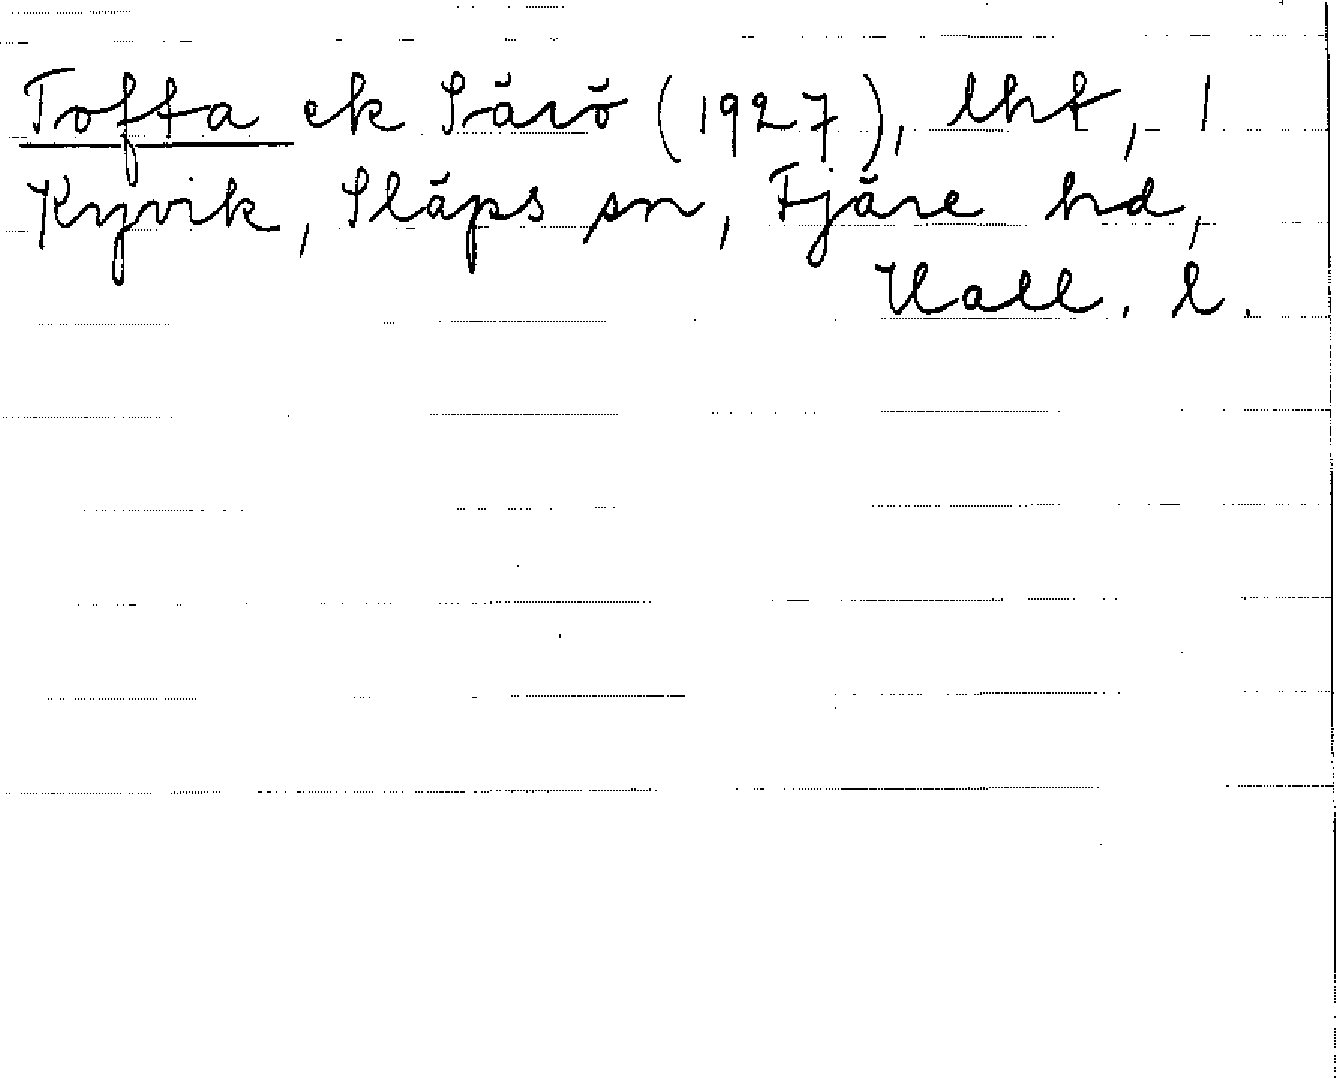 Tofta ek Särö (1927), lht, 1
Kyvik, Släps sn, Fjäre hd,
Hall. l.